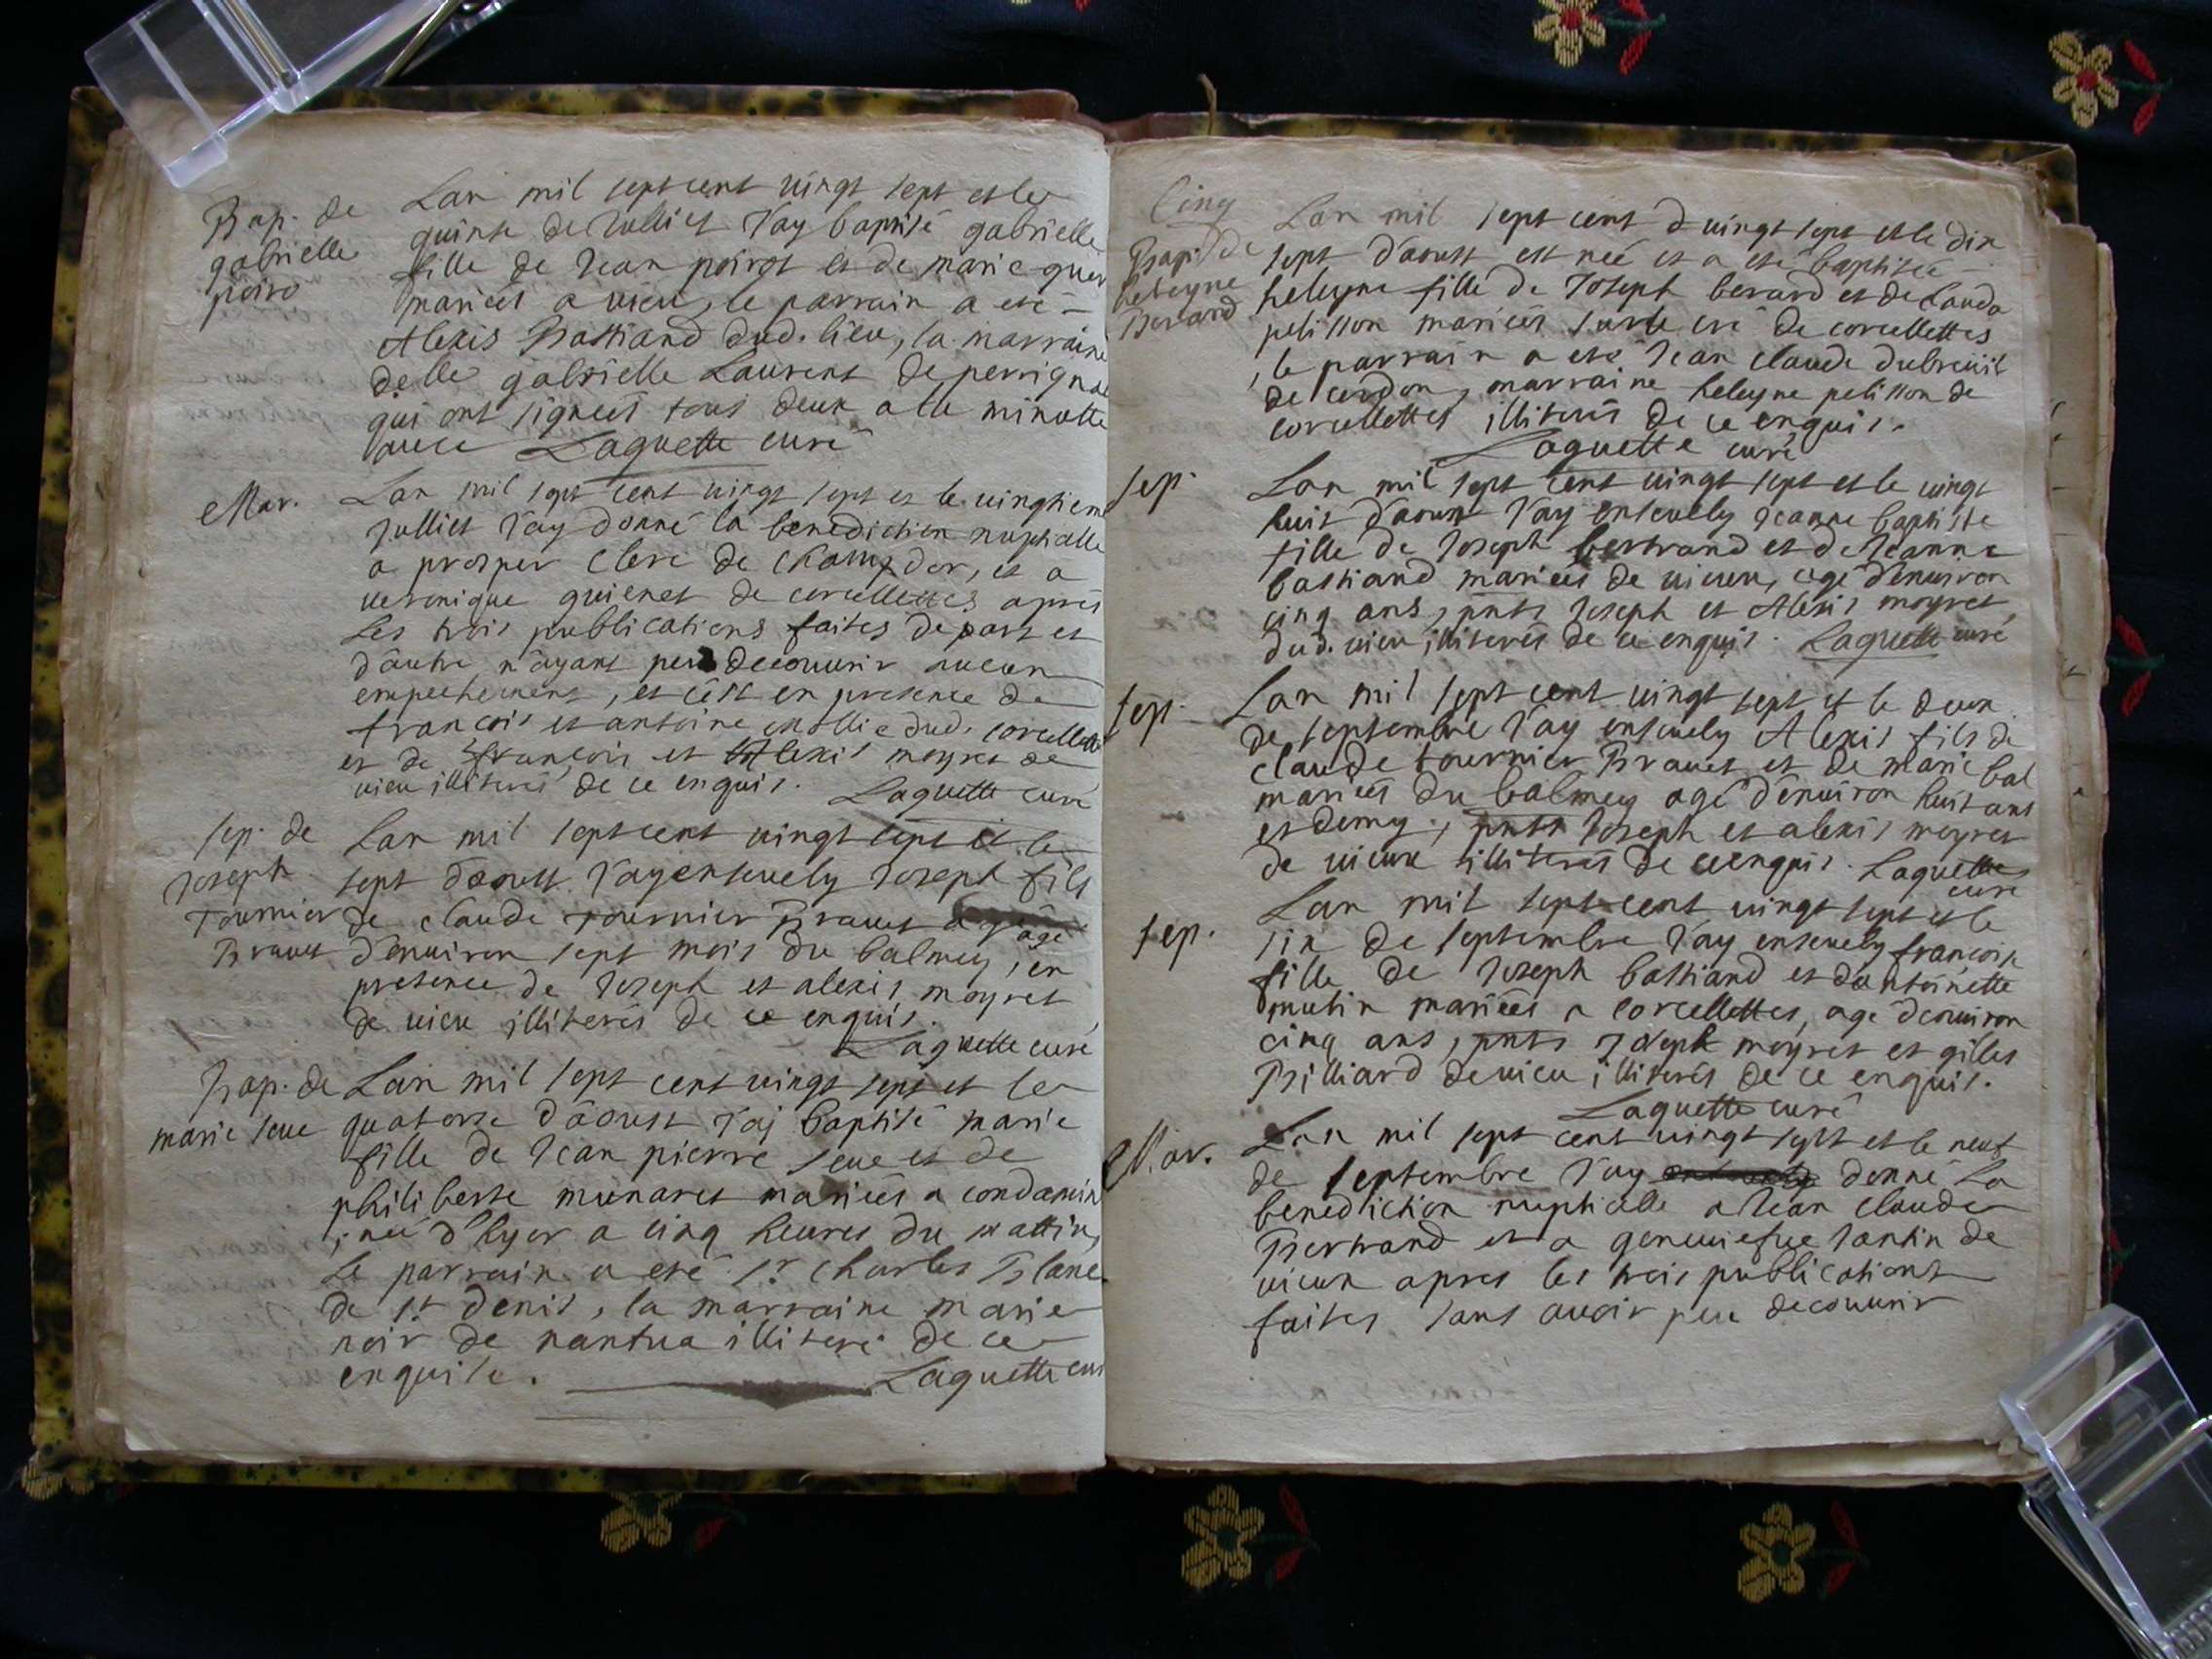 Bap. de
gabrielle
poiro
Lan mil sept cent vingt sept et le
quinse de Julliet J'ay baptisé gabrielle
fille de Jean poirot et de marie
mariés a vieu, le parrain a eté
Alexis Bastiand dud. lieu, la marraine
delle gabrielle Laurent de
qui ont signeés tous deux a la minutte
Laguette curé
Mar.
Lan mil sept cent vingt sept et le vingtiem
Julliet J'ay donné la benediction nuptialle
a prosper Clerc de Champdor, et a
veronique guienet de corcellettes apres
Les trois publications faites de part et
d'autre n'ayant peu decouvrir aucun
empechement, et c'est en presence de
francois et antoine dud. corcellette
et de françois et Alexis moyret de
vieu illiterés de ce enquis. Laguette curé
sep. de
Joseph
Tournier
Bravet
Lan mil sept cent vingt sept et le
sept d'aoust J'ay ensevely Joseph fils
de claude Tournier Bravet agé
d'environ sept mois du balmey, en
presence de Joseph et alexis moyret
de vieu illiterés de ce enquis.
Laguette curé
Bap. de
marie seve
Lan mil sept cent vingt sept et le
quatorse d'aoust J'aj baptisé marie
fille de Jean pierre seve et de
philiberte munaret mariés a condamin
, neé d'hyer a cinq heures du mattin,
Le parrain a eté sr. Charles Blanc
de st denis, la marraine marie
noir de nantua illiteré de ce
enquise. Laguette cur
Cinq
Bap. de
heleyne
Berard
Lan mil sept cent vingt sept et le dix
sept d'aoust est neé et a eté baptiseé
heleyne fille de Joseph berard et de Cauda
pelisson marieés sur le cré de corcellettes
, le parrain a eté Jean claude dubreuil
de cerdon, marraine heleyne pelisson de
corcellettes illiterés de ce enquis.
Laguette curé
sep.
Lan mil sept cent vingt sept et le vingt
huit d'aoust J'ay ensevely Jeanne baptiste
fille de Joseph bertrand et de Jeanne
bastiand marieés de vieux, agé d'environ
cinq ans, pnts Joseph et Alexis moyret
dud. vieu illiterés de ce enquis. Laguette curé
sep.
Lan mil sept cent vingt sept et le deux
de septembre J'ay ensevely Alexis fils de
claude tournier Bravet et de marie bal
marieés du balmey agé d'environ huit ans
et demy, pnts Joseph et alexis moyret
de vieux illiterés de ce enquis. Laguette
curé
sep.
Lan mil sept cent vingt sept et le
six de septembre J'ay ensevely françoise
fille de Joseph bastiand et d'antoinette
mutin marieés a corcellettes, agé d'environ
cinq ans, pnts Joseph moyret et gilles
Billiard de vieu illiterés de ce enquis.
Laguette curé
Mar.
Lan mil sept cent vingt sept et le neuf
de septembre J'ay donné La
benediction nuptialle a Jean claude
Bertrand et a geneviefve Jantin de
vieux apres les trois publications
faites sans avoir peu decouvrir